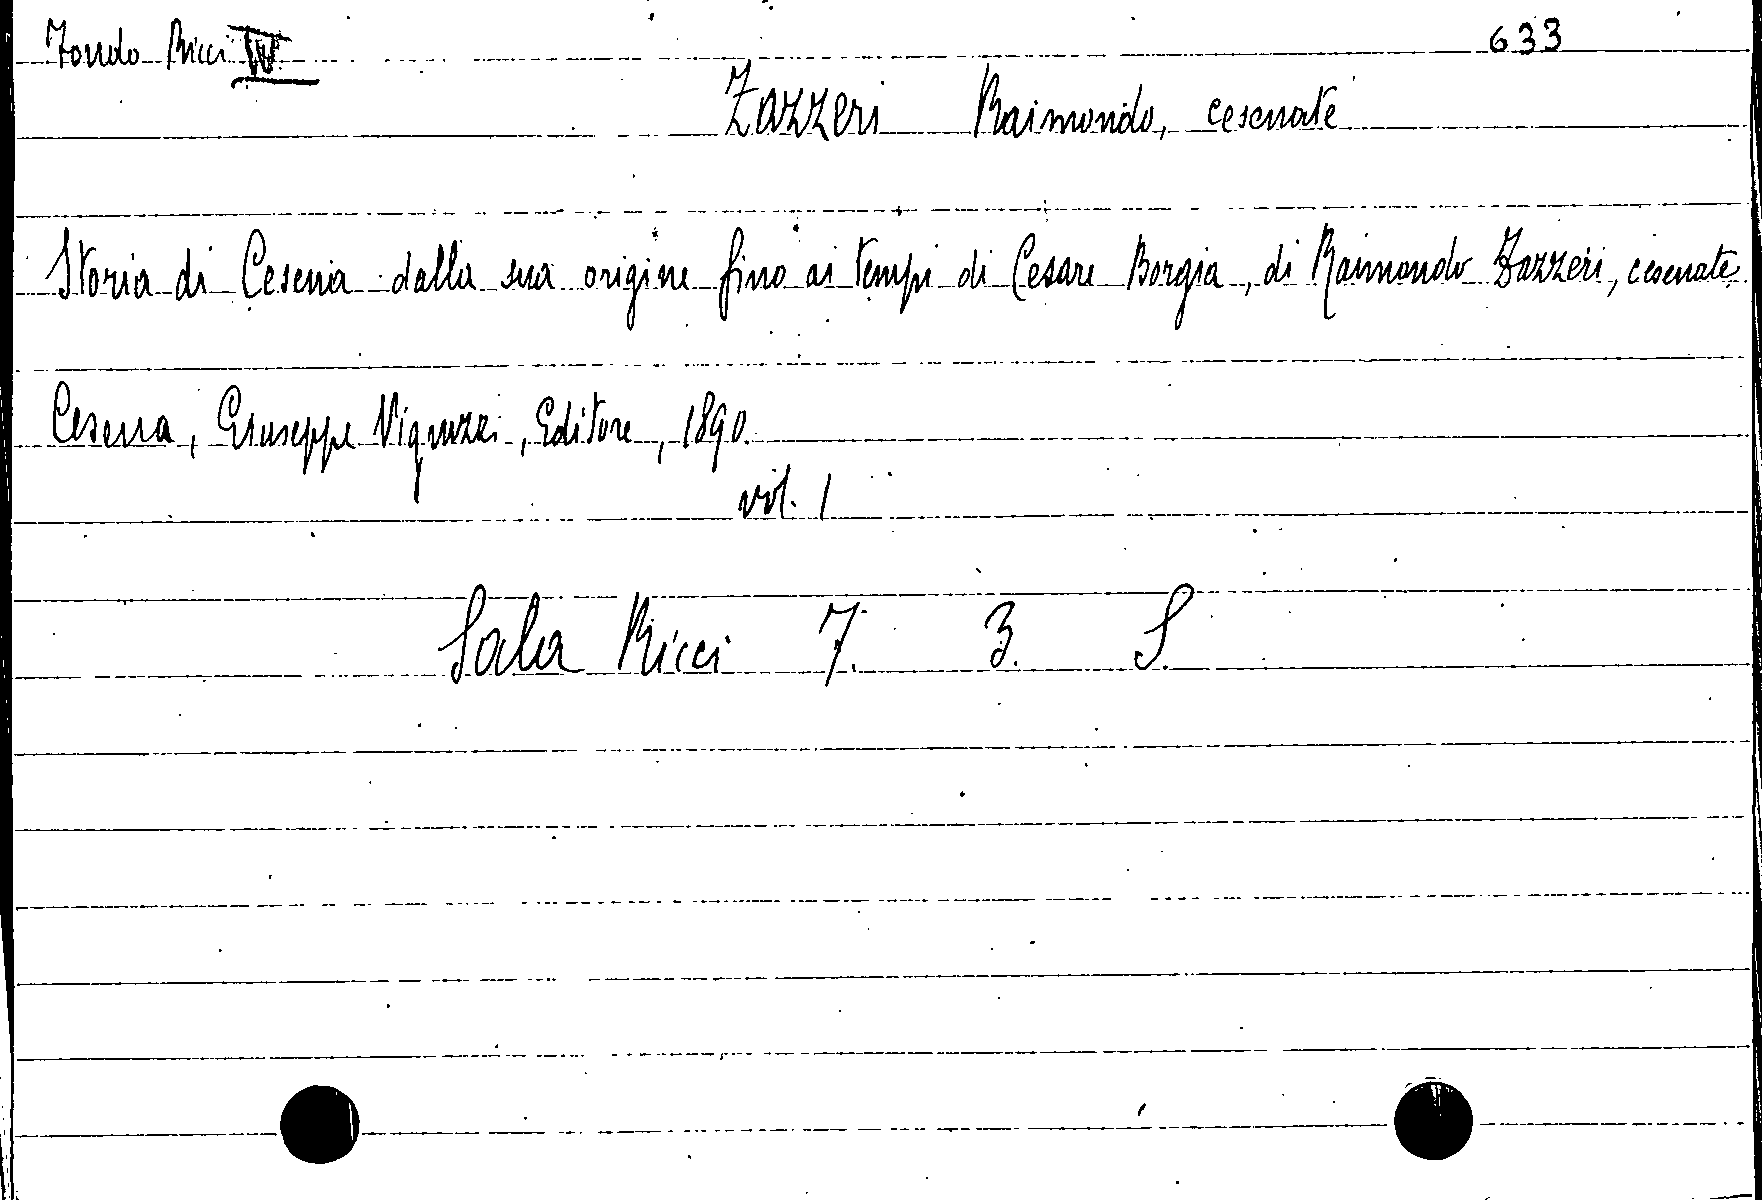 Fondo Ricci IV 633
Zazzeri Raimondo, cesenate
Storia di Cesena dalla sua origine fino ai tempi di Cesare Borgia, di Raimondo Zazzeri, cesenate.
Cesena, Giuseppe Vignuzzi, Editore, 1890.
vol. 1
Sala Ricci 7. 3. S.